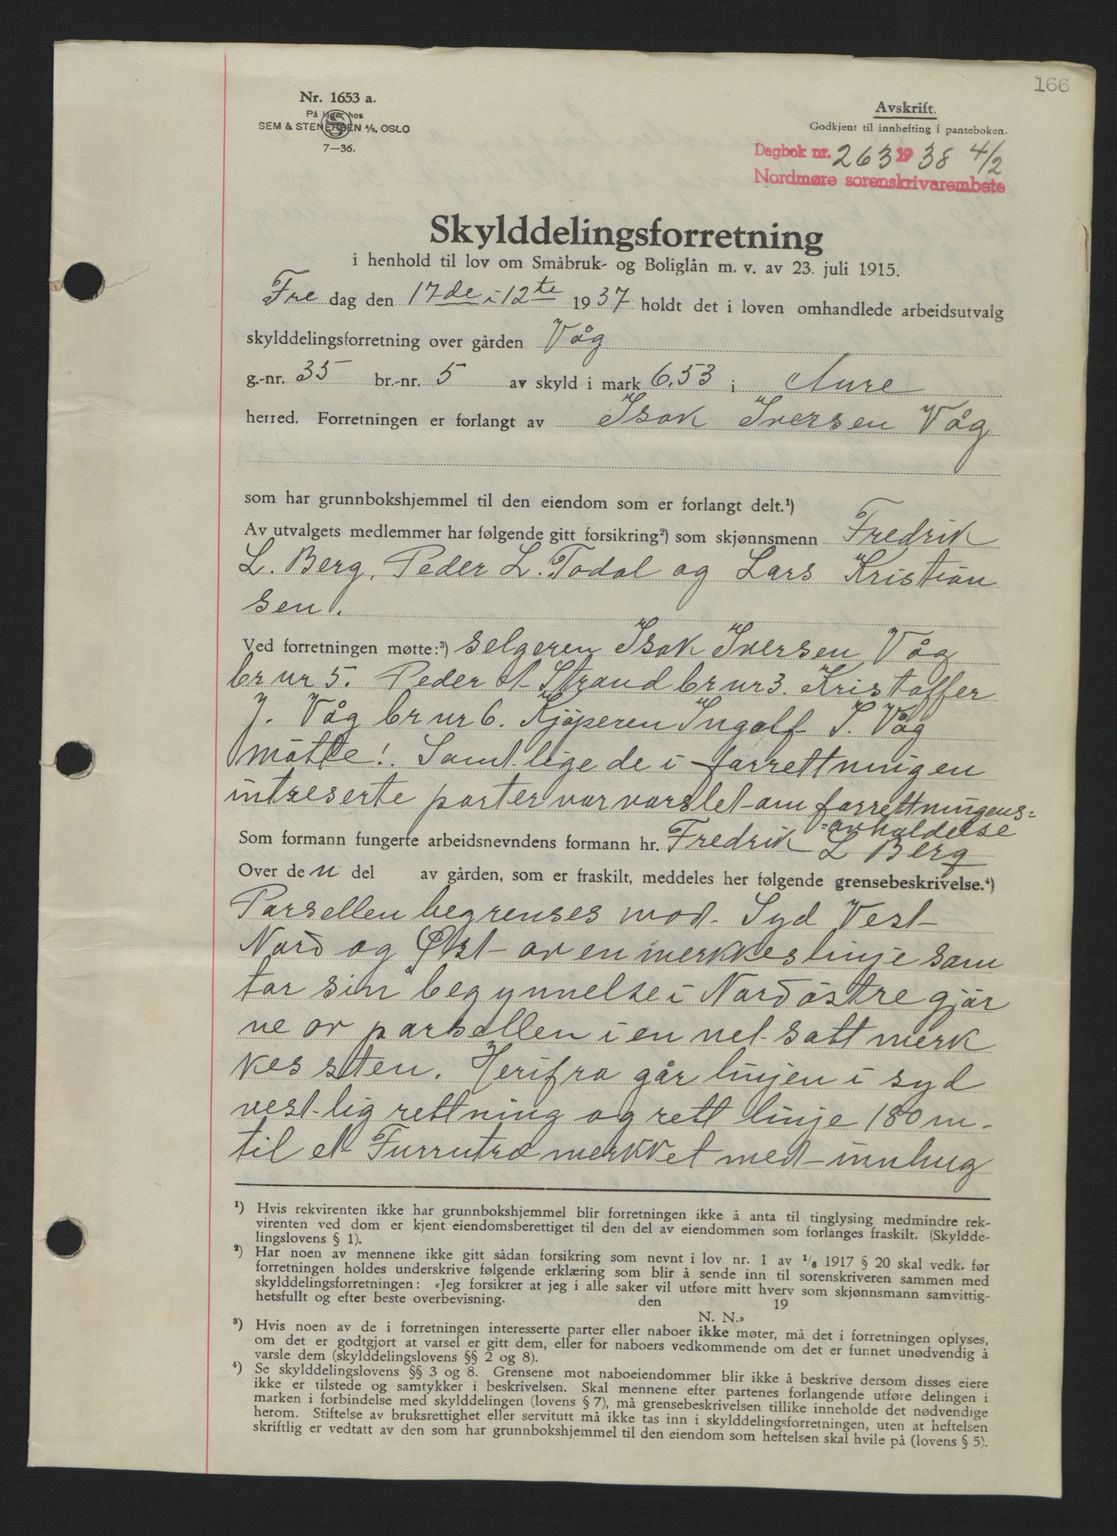 166
Nr. 1653 a.
På lager hos
SEM & STENERSEN A/S, OSLO
7—36.
Avskrift.
Godkjent til innhefting i panteboken.
Dagbok nr. 263 1938 4/2
Nordmøre sorenskrivarembete
Skylddelingsforretning
i henhold til lov om Småbruk- og Boliglån m. v. av 23. juli 1915.
Fre dag den 17de i 12te 1937 holdt det i loven omhandlede arbeidsutvalg
skylddelingsforretning over gården Våg
g.-nr. 35 br.-nr. 5 av skyld i mark 6,53 i Aure
herred. Forretningen er forlangt av Isak Iversen Våg
som har grunnbokshjemmel til den eiendom som er forlangt delt.¹)
Av utvalgets medlemmer har følgende gitt forsikring²) som skjønnsmenn Fredrik
L. Berg, Peder L. Todal og Lars Kristian
sen.
Ved forretningen møtte:³) selgeren Isak Iversen Våg
br nr 5. Peder A Strand br nr 3. Kristoffer
J. Våg br nr 6. Kjøperen Ingolf I. Våg
møtte!. Samtlige de i farrettningen
intreserte parter var varslet om farrettningens=
=avholdelse
Som formann fungerte arbeidsnevndens formann hr. Fredrik L Berg
Over den del av gården, som er fraskilt, meddeles her følgende grensebeskrivelse.⁴)
Parsellen begrenses mot Syd Vest
Nord og Øst av en merkkeslinje som
tar sin begynnelse i Nordøstre gjør
ne av parsellen i en nel satt merk
kes sten. Herifra går linjen i syd
vestlig rettning og rett linje 180 m.
til et Furrutræ merkket med innhug
¹) Hvis rekvirenten ikke har grunnbokshjemmel blir forretningen ikke å anta til tinglysing medmindre rek-
virenten ved dom er kjent eiendomsberettiget til den del av eiendommen som forlanges fraskilt. (Skyldde-
lingslovens § 1).
²) Har noen av mennene ikke gitt sådan forsikring som nevnt i lov nr. 1 av 1/6 1917 § 20 skal vedk. før
forretningen holdes underskrive følgende erklæring som blir å sende inn til sorenskriveren sammen med
skylddelingsforretningen: «Jeg forsikrer at jeg i alle saker vil utføre mitt hverv som skjønnsmann samvittig-
hetsfullt og efter beste overbevisning. den 19
N. N.»
³) Hvis noen av de i forretningen interesserte parter eller naboer ikke møter, må det i forretningen oplyses,
om det er godtgjort at varsel er gitt dem, eller for naboers vedkommende om det er funnet unødvendig å
varsle dem (skylddelingslovens §§ 2 og 8).
⁴) Se skylddelingslovens §§ 3 og 8. Grensene mot naboeiendommer blir ikke å beskrive dersom disses eiere
ikke er tilstede og samtykker i beskrivelsen. Skal mennene efter partenes forlangende utføre delingen i
marken i forbindelse med skylddelingen (lovens § 7), må grensebeskrivelsen tillike inneholde det nødvendige
herom. Stiftelse av bruksrettighet eller servitutt må ikke tas inn i skylddelingsforretningen, uten at heftelsen
skriftlig er vedtatt av den som har grunnbokshjemmel til den eiendom som heftelsen skal hvile på (lovens § 5).